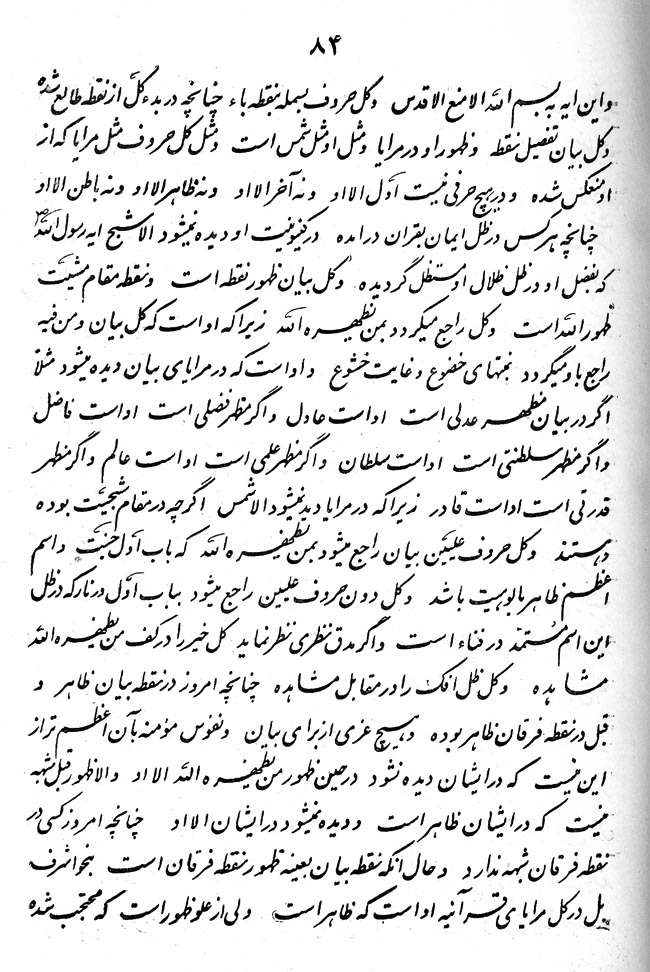 ۸۴
واین ایه به بسم الله الامنع الاقدس وکل حروف بسمله بنقطه باء چنانچه در بدء کل از نقطه طالع شده
وکل بیان تفصیل نقطه وظهور او در مرایا ومثل او مثل شمس است ومثل کل حروف مثل مرایا که از
او منعکس شده ودر هیچ حرفی نیست اول الا او ونه آخر الا او ونه ظاهر الا او ونه باطن الا او
چنانچه هرکس در ظل ایمان بقران درامده در کینونیت او دیده نمیشود الا شبح ایه رسول الله ص
که بفضل او در ظل ظلال او مستظل گردیده وکل بیان ظهور نقطه است ونقطه مقام مشیت
ظهور الله است وکل راجع میگردد بمن یظهره الله زیرا که او است که کل بیان ومن فیه
راجع باو میگردد بمنتهای خضوع وغایت خشوع واو است که در مرایای بیان دیده میشود مثلا
اگر در بیان مظهر عدلی است او است عادل واگر مظهر فضلی است او است فاضل
واگر مظهر سلطنتی است او است سلطان واگر مظهر علمی است او است عالم واگر مظهر
قدرتی است او است قادر زیرا که در مرایا دیده نمیشود الا شمس اگرچه در مقام شبحیت بوده
وهستند وکل حروف علیین بیان راجع میشود بمن یظهره الله که باب اول جنت واسم
اعظم ظاهر بالوهیت باشد وکل دون حروف علیین راجع میشود بباب اول در نار که در ظل
این اسم مستمد در فناء است واگر مدق نظری نظر نماید کل خیر را در کف من یظهره الله
مشاهده وکل ظل افک را در مقابل مشاهده چنانچه امروز در نقطه بیان ظاهر و
قبل در نقطه فرقان ظاهر بوده وهیچ عزی از برای بیان ونفوس مؤمنه بآن اعظم تر از
این نیست که در ایشان دیده نشود در حین ظهور من یظهره الله الا او والا ظهور قبل شبهه
نیست که در ایشان ظاهر است ودیده نمیشود در ایشان الا او چنانچه امروز کسی در
نقطه فرقان شبهه ندارد وحال آنکه نقطه بیان بعینه ظهور نقطه فرقان است بنحو اشرف
بل در کل مرایای قرآنیه او است که ظاهر است ولی از علو ظهور است که محتجب شده